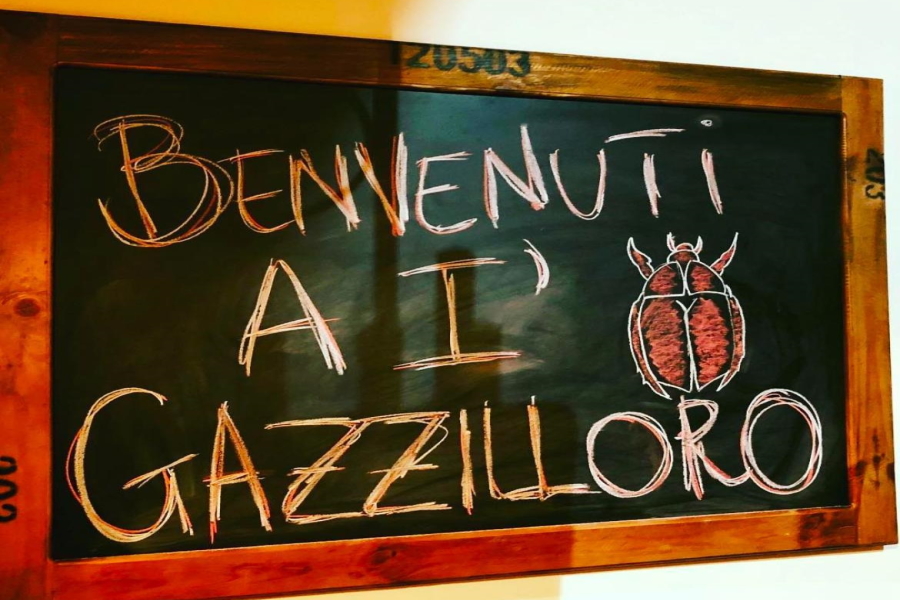 20503
BENVENUTI
A I'
GAZZILLORO
203